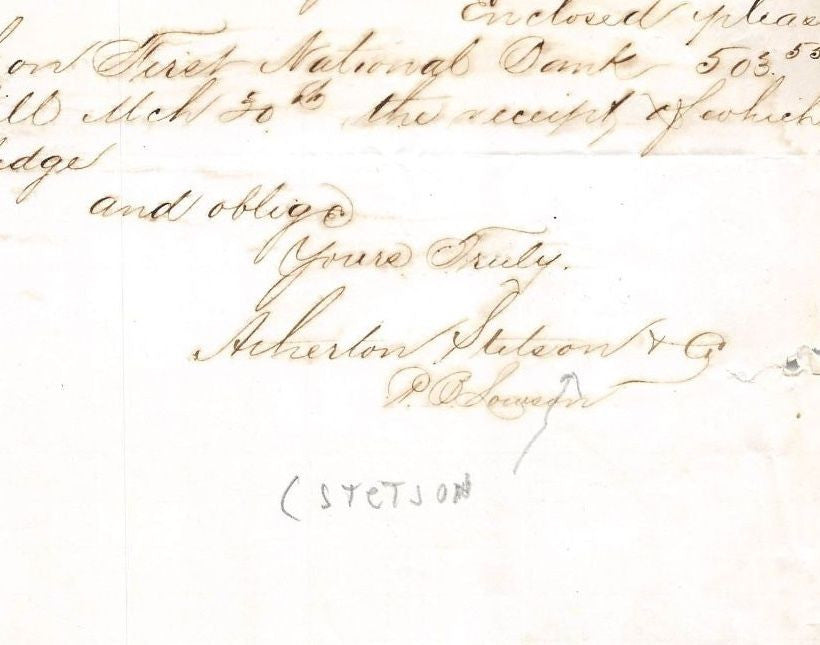 Enclosed pleas
on First National Bank 503.55
ill Mch 30th the receipt of which
edge
and oblige
Yours Truly.
Atherton Stetson & Co
P. B.
(STETSON